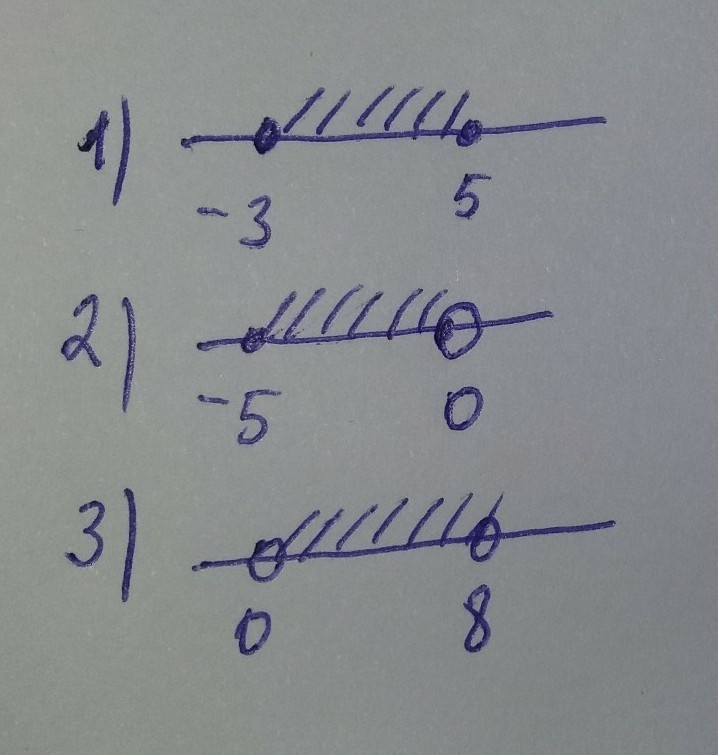 1)
-3 5
2)
-5 0
3)
0 8